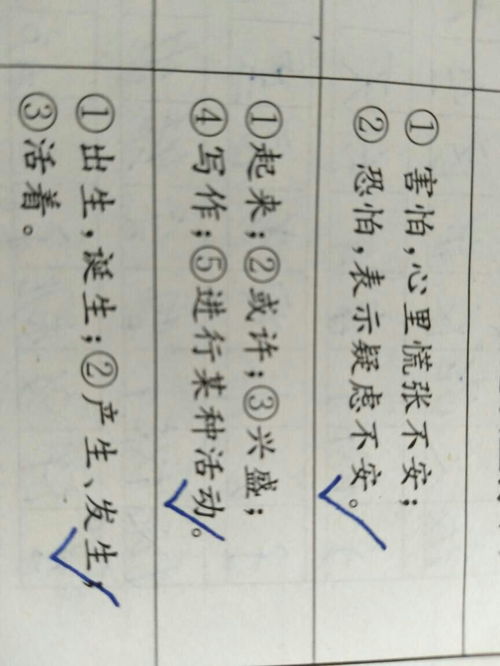 ① 害怕,心里慌张不安;
② 恐怕,表示疑虑不安。
①起来;②或许;③兴盛;
④写作;⑤进行某种活动。
①出生,诞生;②产生、发生;
③活着。